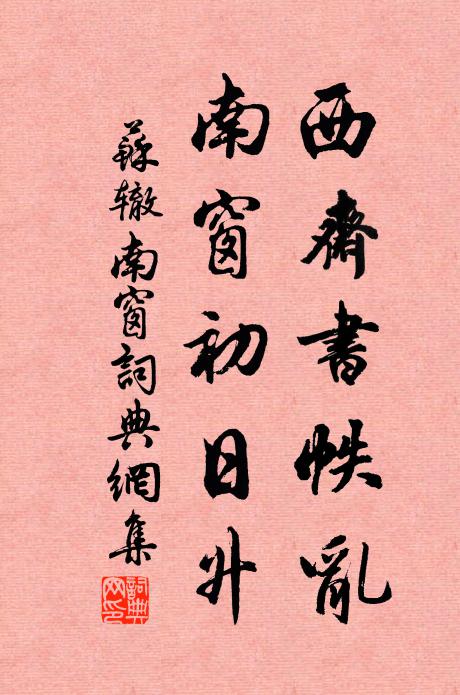 西齋書帙亂
南窗初日升
蘇辙南窗詞典網集
詞典网印